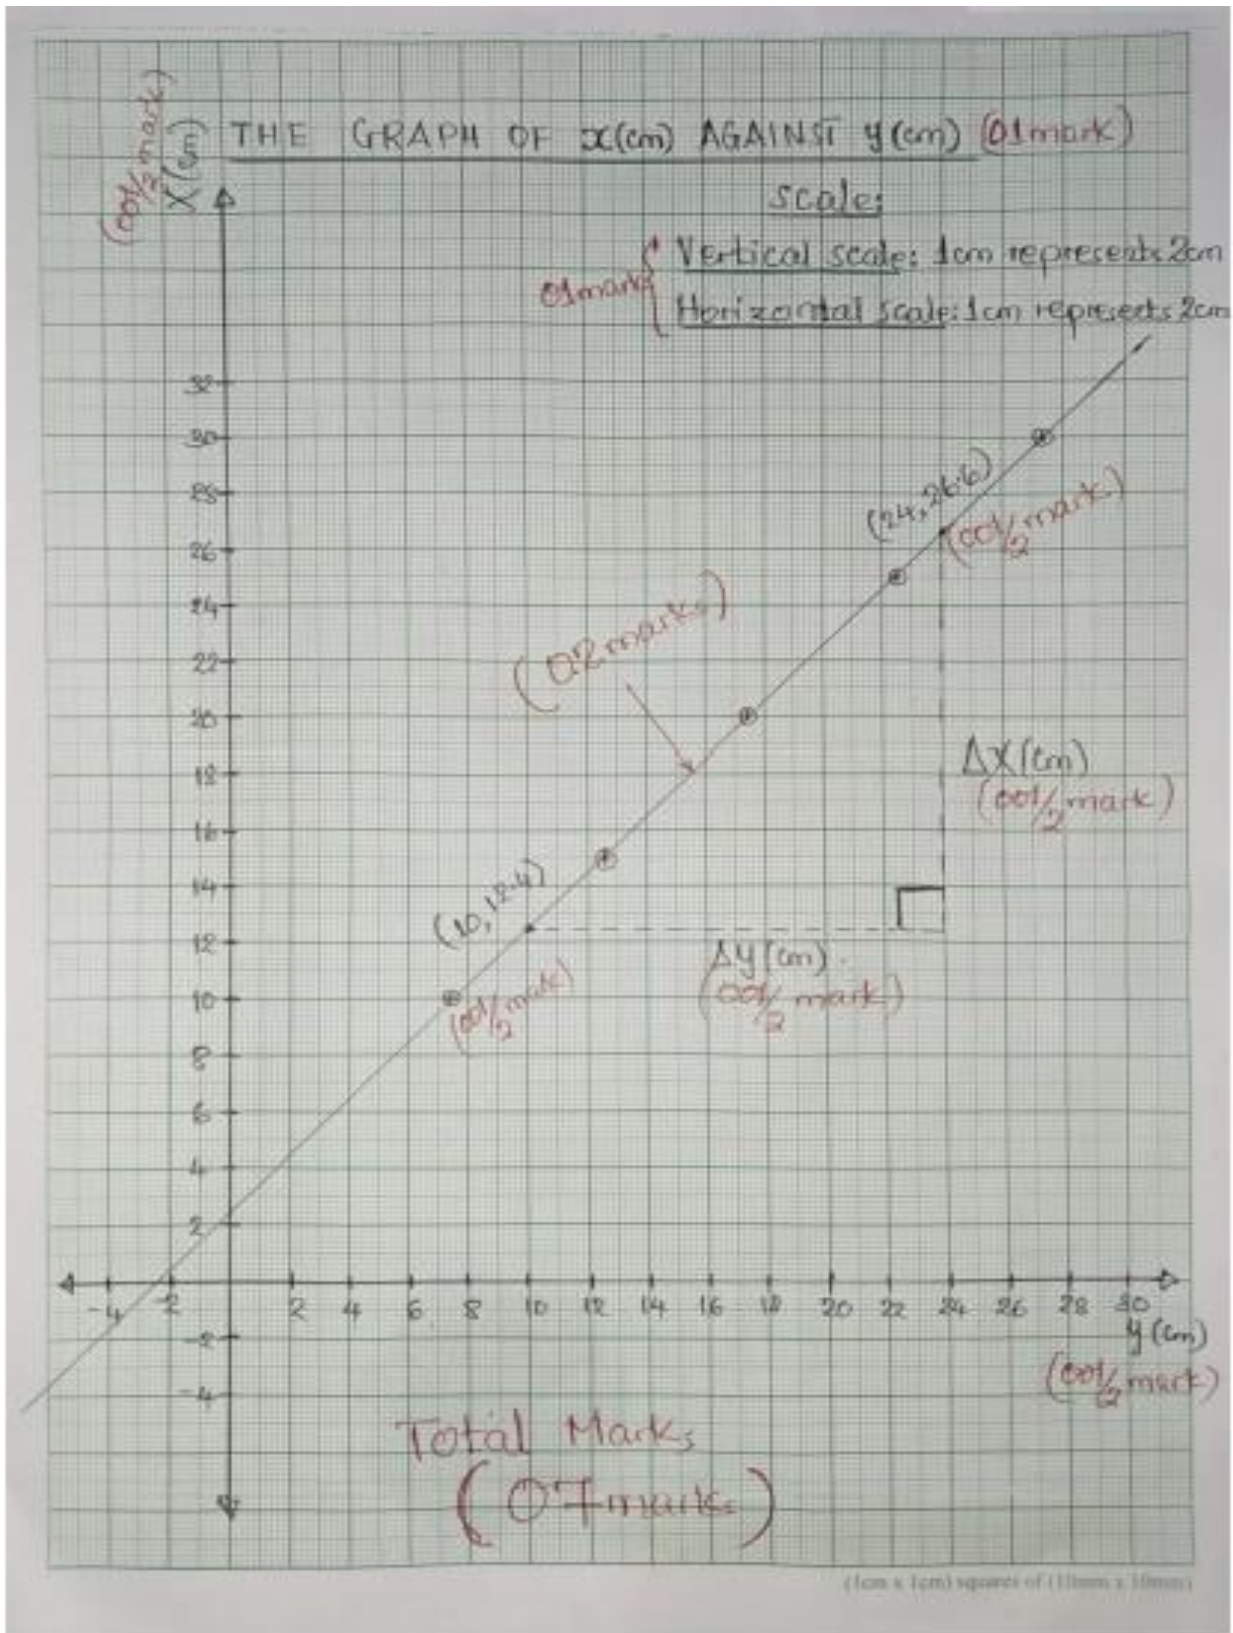 (00½ mark)
X(cm)
THE GRAPH OF x(cm) AGAINST y(cm) (01mark)
Scale:
Vertical scale: 1cm represents 2cm
01mark
Horizontal scale: 1cm represents 2cm
32
30
28
26
24
22
20
18
16
14
12
10
8
6
4
2
-2
-4
(24, 26.6)
(00½ mark)
(02 marks)
ΔX(cm)
(00½ mark)
(10, 12.4)
(00½ mark)
Δy(cm).
(00½ mark)
-4 -2 2 4 6 8 10 12 14 16 18 20 22 24 26 28 30
y(cm)
(00½ mark)
Total Marks
(07marks)
(1cm x 1cm) squares of (10mm x 10mm)